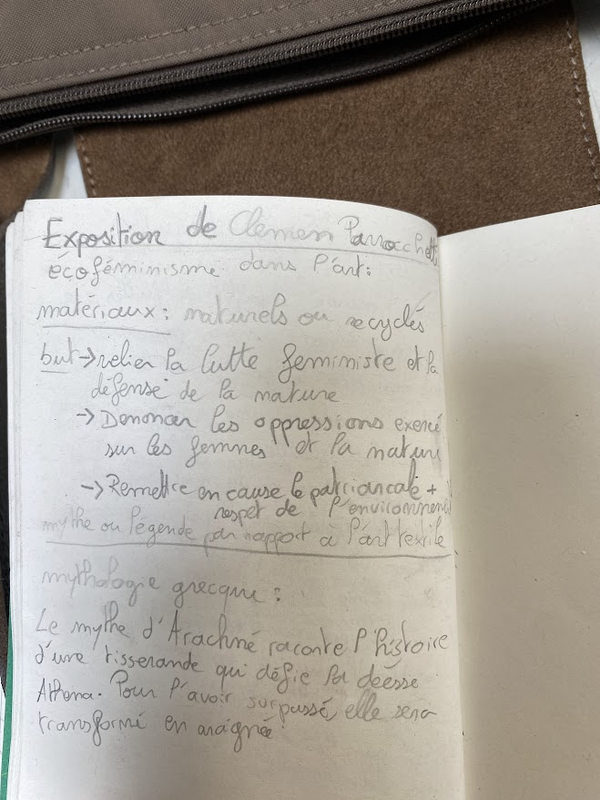 Exposition de Clemen Parrochett
écoféminisme dans l'art:
matériaux: naturels ou recyclés
but → relier la lutte feministe et la
défense de la nature
→ Dénoncer les oppressions exercé
sur les femmes et la nature
→ Remettre en cause le patriarcale +
respet de l'environnement
mythe ou légende par rapport à l'art textile
mythologie grecque :
Le mythe d'Arachné raconte l'histoire
d'une tisserande qui défie la déesse
Athena. Pour l'avoir surpassé, elle sera
transformé en araignée.